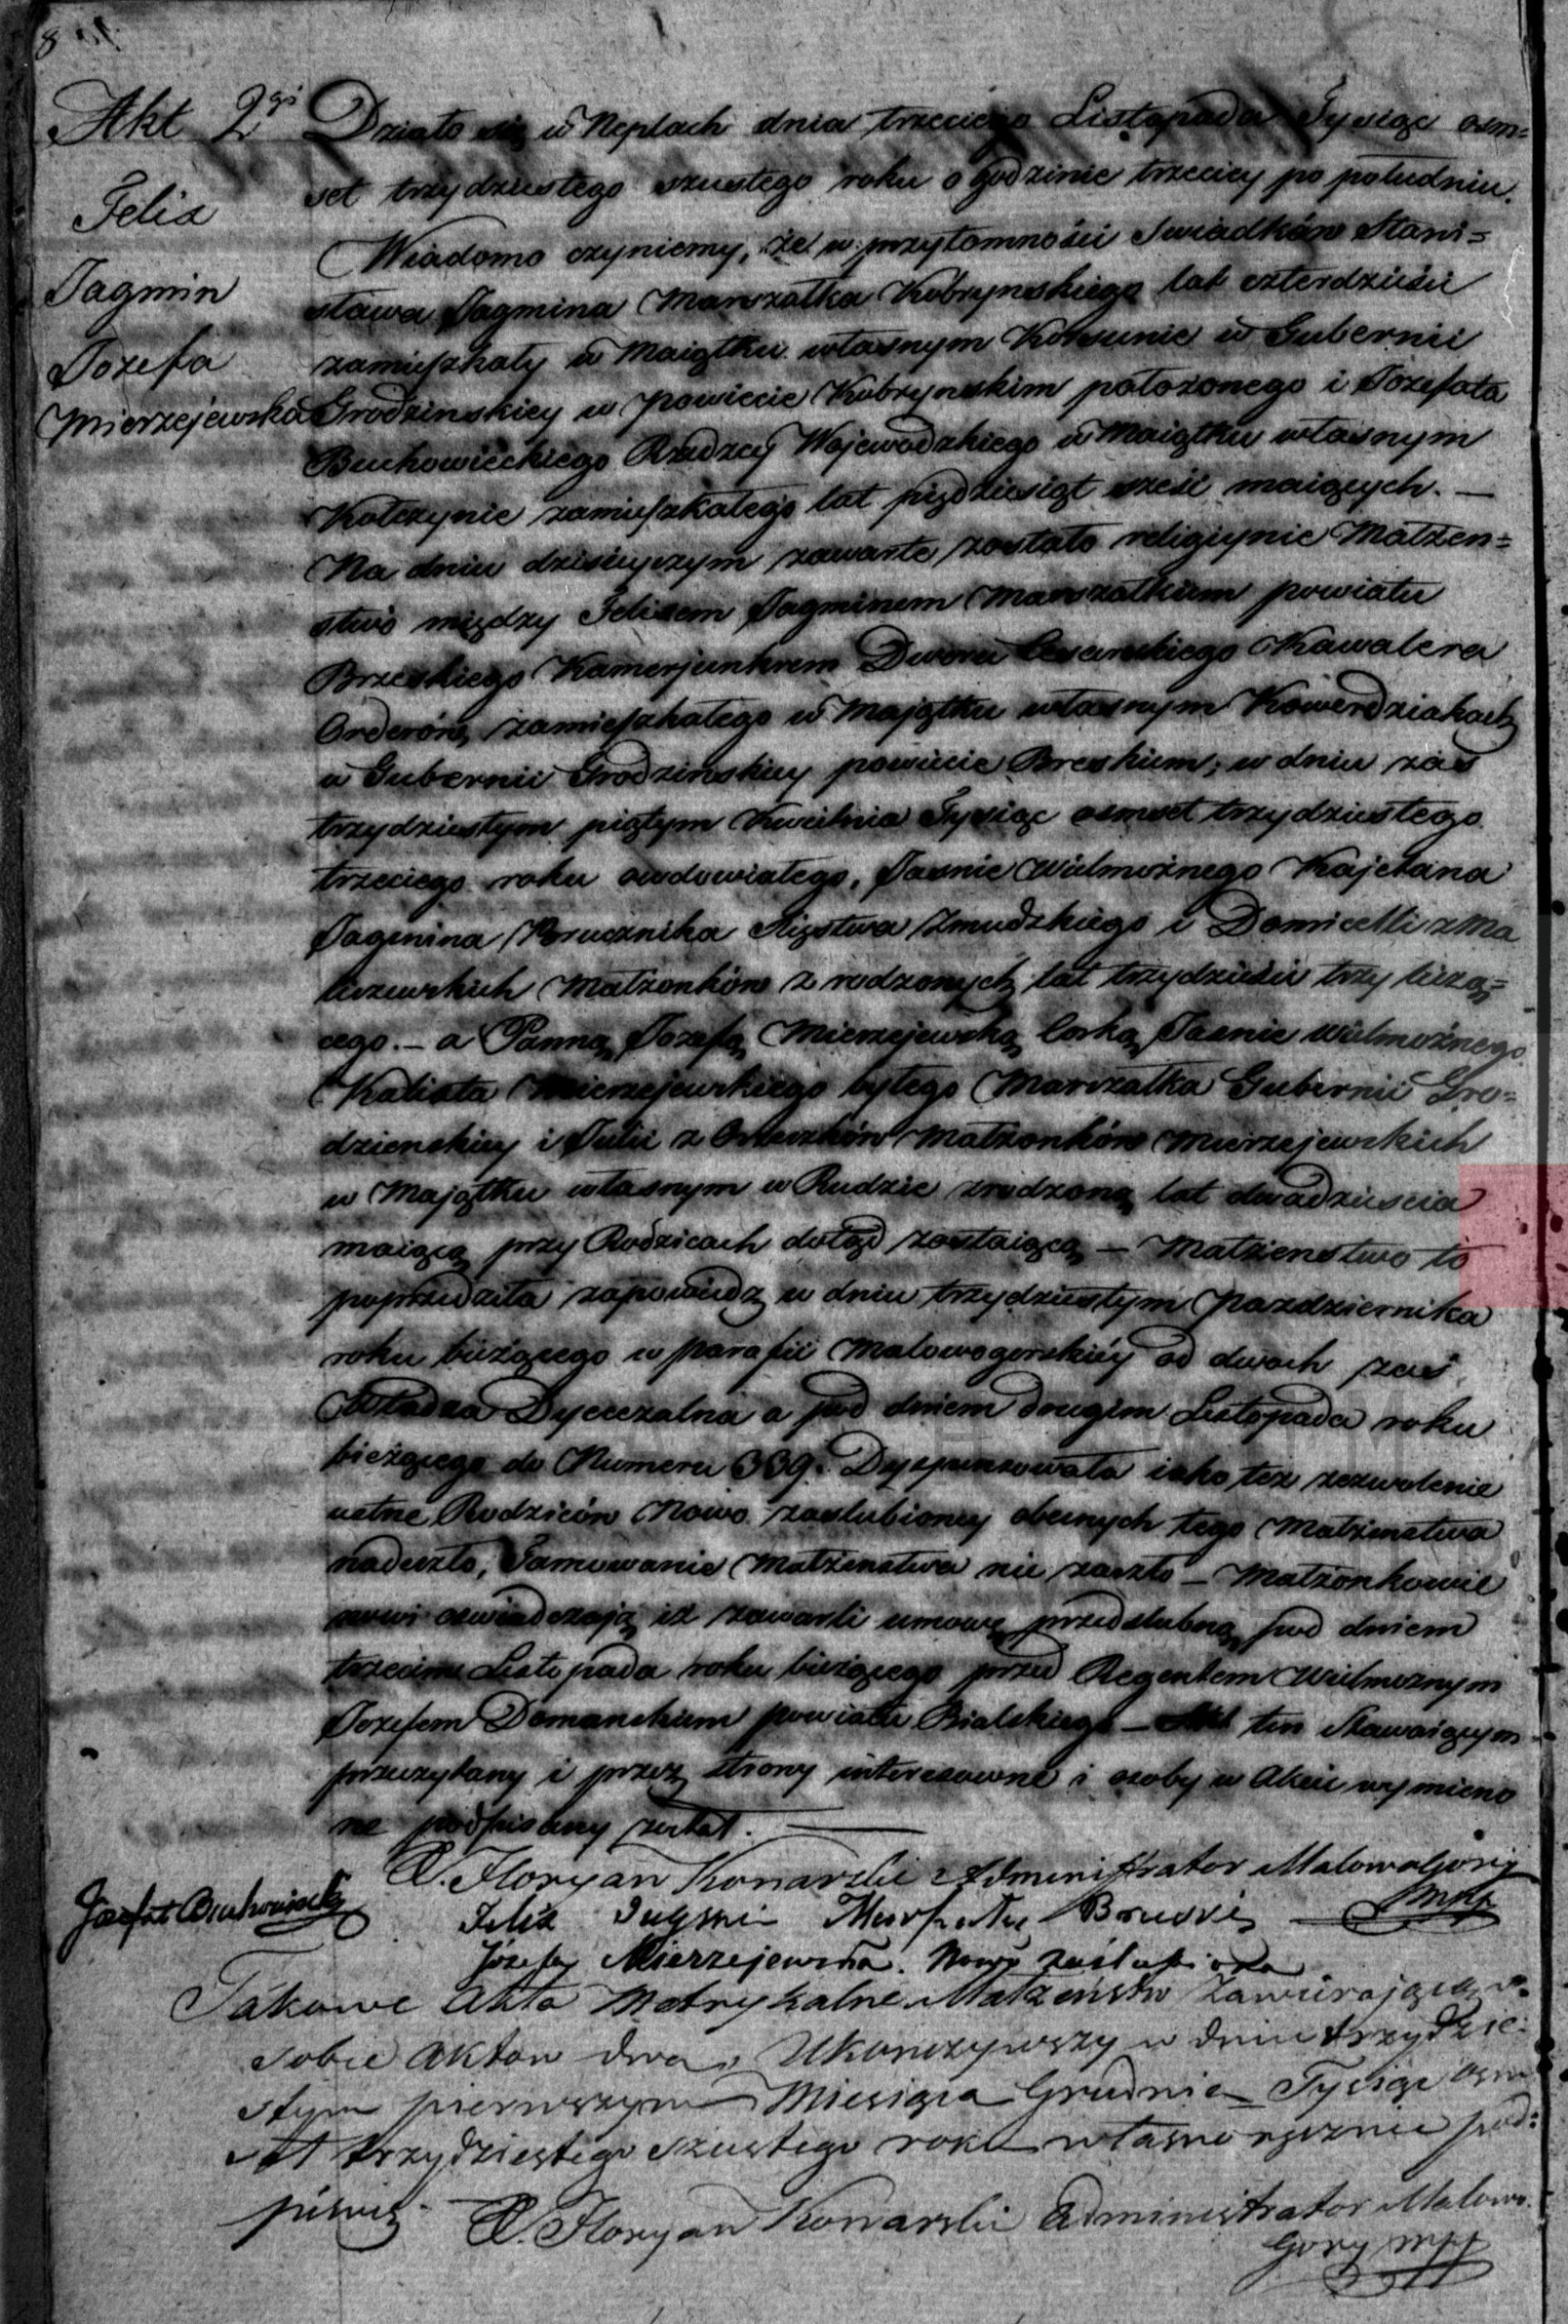 8
Akt 2gi
Felix
Jagmin
Jozefa
Mierzejewska
Działo się w Neplach dnia trzeciego Listopada Tysiąc ośm=
set trzydziestego szustego roku o godzinie trzeciey po południu.
Wiadomo czyniemy, że w przytomności Swiadków Stani=
sława Jagmina Marszałka Kobrynskiego lat czterdzieści
zamieszkały w Maiątku własnym w Gubernii
Grodzinskiey w powiecie Kobrynskim położonego i Jozefata
Buchowieckiego Radzcy Wojewodzkiego w Maiątku własnym
Kolczynie zamieszkałego lat piędziesiąt sześć maiących. —
Na dniu dzisieyszym zawarte zostało religiynie Małżen=
stwo między Felixem Jagminem Marszałkiem powiatu
Brzeskiego Kamerjunkrem Dworu Cesarskiego Kawalera
Orderów, zamieszkałego w Majątku własnym Kowerdziakach
w Gubernii Grodzinskiey powiecie Breskim; w dniu zaś
trzydziestym piątym Kwietnia Tysiąc osmset trzydziestego
trzeciego roku owdowiałego, Jasnie Wielmożnego Kajetana
Jagmina Xięstwa Zmudzkiego i Domicelli z Ma
Małżonków z rodzonych lat trzydzieści trzy liczą=
cego. — a Panną Jozefą Mierzejewską Corką Jasnie Wielmożnego
Kalixta Mierzejewskiego byłego Marszałka Gubernii Gro=
dzienskiey i Julii z Małżonków Mierzejewskich
w Majątku własnym w Rudzie zrodzoną lat dwadzieścia
maiącą przy Rodzicach dotąd zostaiącą — Małżenstwo to
poprzedziła zapowiedz w dniu trzydziestym Pazdziernika
roku bieżącego w parafii Malowogorskiey od dwoch zaś
Władza Dyecezalna a pod dniem drugim Listopada roku
bieżącego do Numeru 339. Dyspensowała iako też zezwolenie
ustne Rodziców Nowo zaślubioney obecnych tego Małżenstwa
nadeszło, Tamowanie Małżenstwa nie zaszło — Małżonkowie
nowi oswiadczają iż zawarli umowę przedślubną pod dniem
trzecim Listopada roku bieżącego przed Regentem Wielmożnym
Jozefem Domanskim powiatu Bialskiego — Akt ten Stawaiącym
przeczytany i przez strony interesowne i osoby w Akcie wymieno
ne podpisany został.
X. Floryan Konarski Administrator Malowogory
mpp
Jozafat Buchowiecki
Felix Jagmin
Józefa Mierzejewska. Nowo zaślubiona
Takowe Akta Metrykalne Małżeństw Zawierające w
sobie Aktow dwa, Ukonczywszy w dniu trzydzie=
stym pierwszym Miesiąca Grudnia Tysiąc osm
set trzydziestego szustego roku własnoręcznie pod=
pisuię. —
X. Floryan Konarski Administrator Malowo
Gory mpp